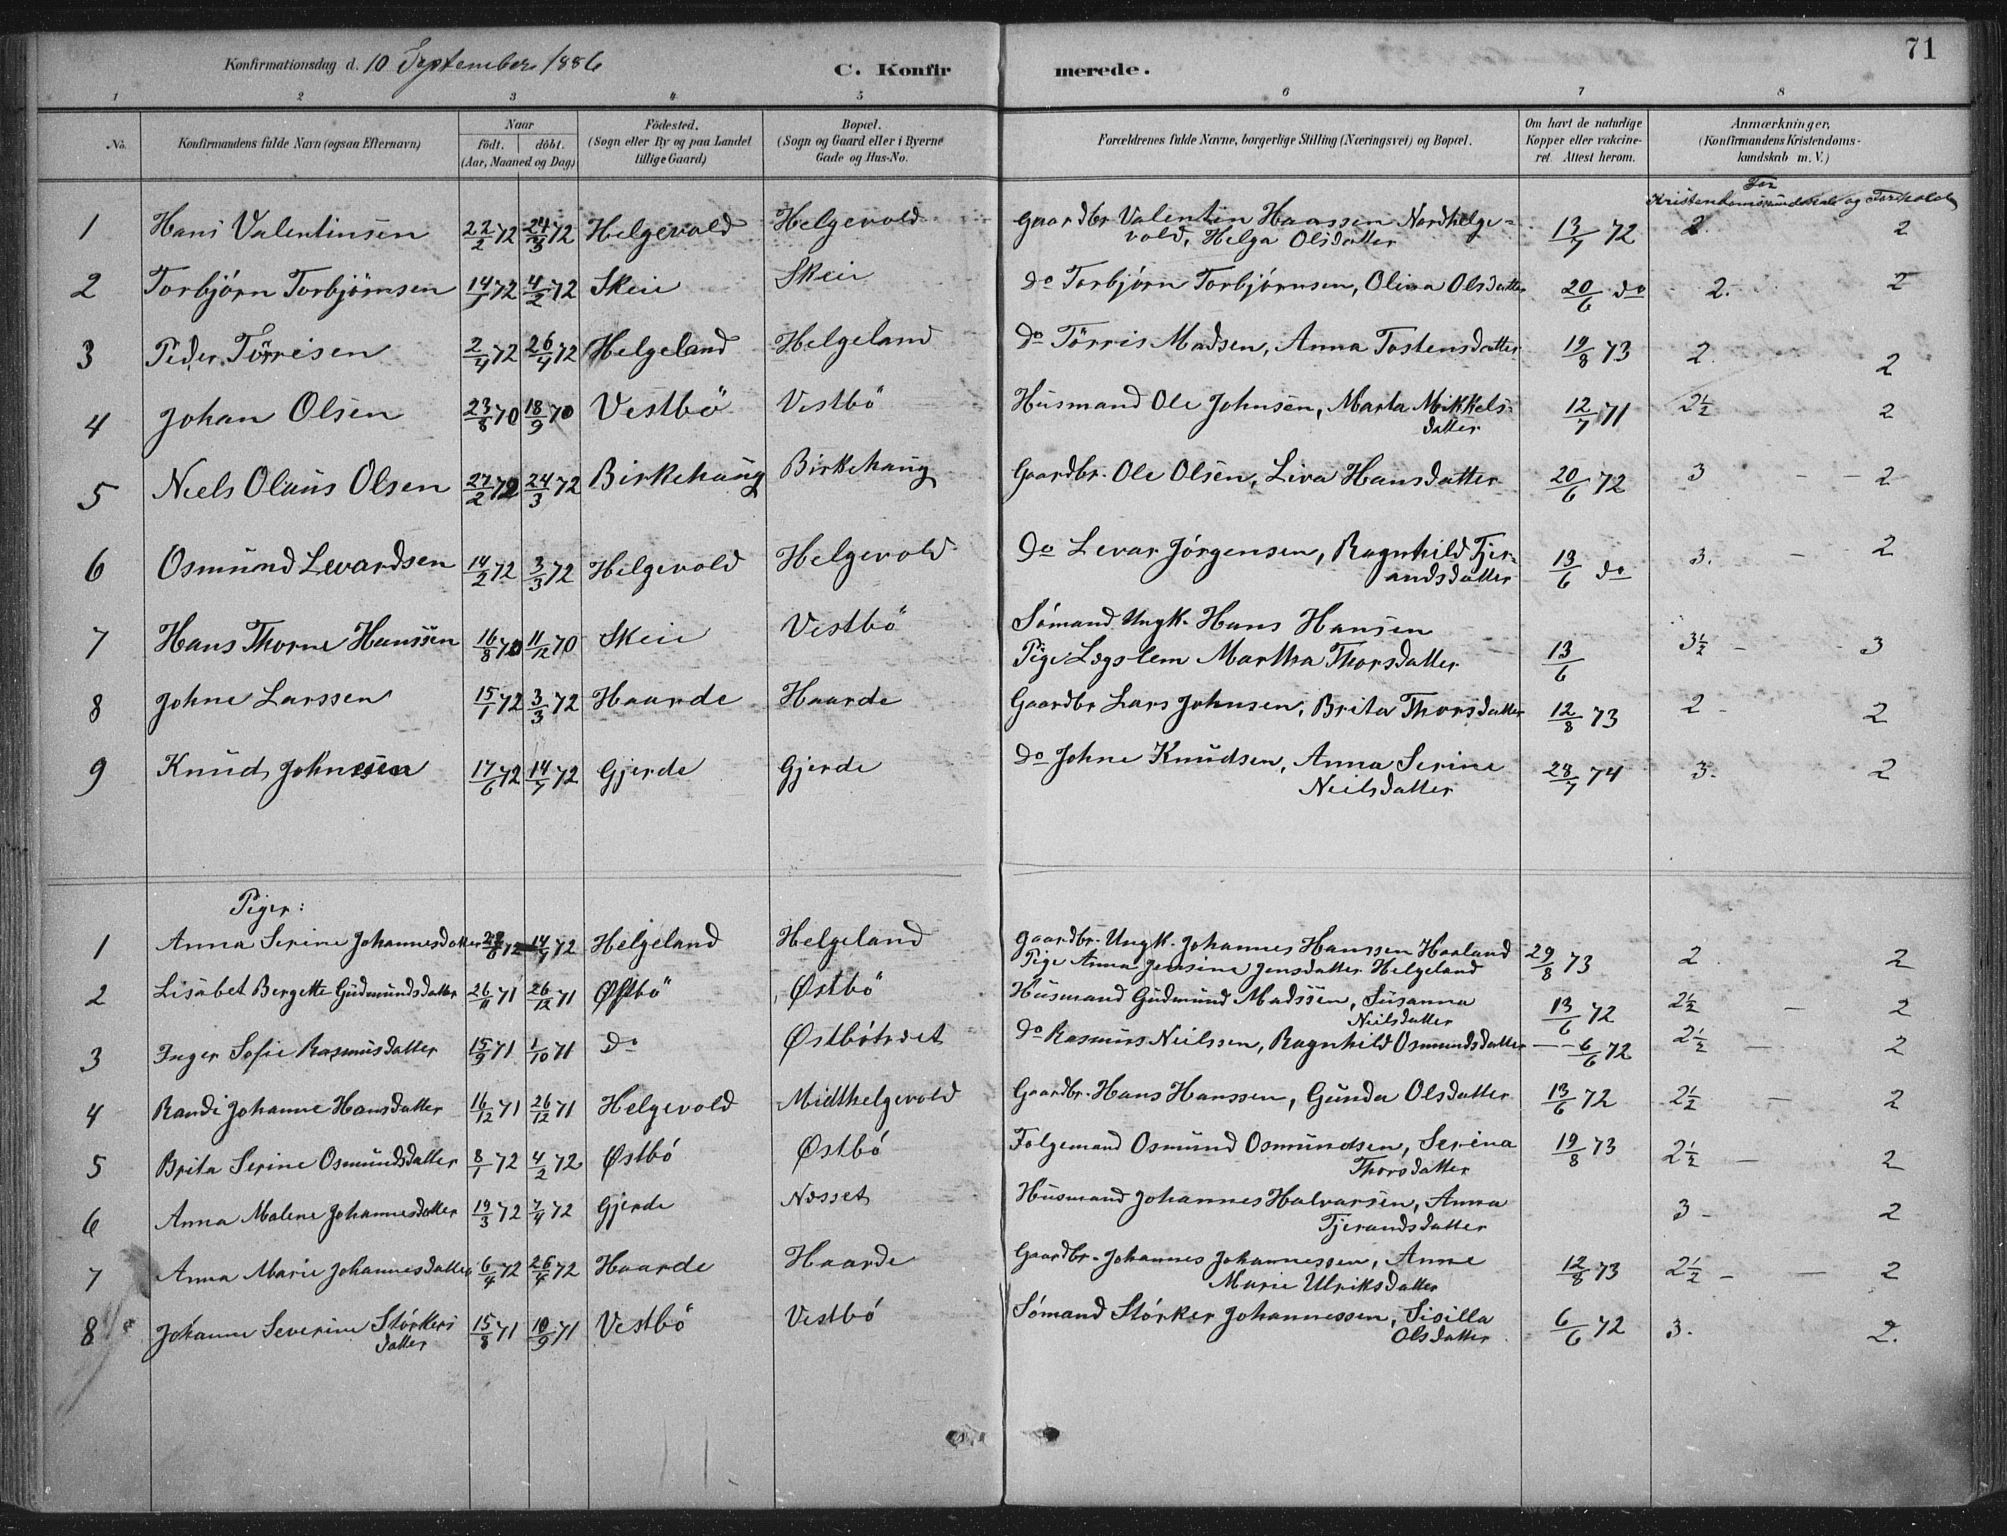 71
Konfirmationsdag d. 10 September 1886
C. Konfirmerede.
1 2 3 4 5 6 7 8
No. Konfirmandens fulde Navn (ogsaa Efternavn) Naar født. døbt. (Aar, Maaned og Dag) Födested. (Sogn eller By og paa Landet tillige Gaard) Bopæl. (Sogn og Gaard eller i Byerne Gade og Hus-No. Forældrenes fulde Navne, borgerlige Stilling (Næringsvei) og Bopæl. Om havt de naturlige Kopper eller vakcineret. Attest herom. Anmærkninger, (Konfirmandens Kristendomskundskab m. V.)
For
Kristendomskundskab og Forhold
1 Hans Valentinsen 22/2 72 24/3 72 Helgevold Helgevold Gaardbr Valentin Haassen Nordhelge-
vold, Helga Olsdatter 13/7 72 2. 2
2 Torbjørn Torbjørnsen 14/1 72 4/2 72 Skeie Skeie Do Torbjørn Torbjørnsen, Olina Olsdatter 20/6 do 2. 2
3 Peder Törrisen 2/4 72 26/4 72 Helgeland Helgeland Do Törris Madsen, Anna Tostensdatter 19/8 73 2. 2
4 Johan Olsen 23/8 70 18/9 70 Vestbö Vestbö Husmand Ole Johnsen, Marta Mikkels-
datter 12/7 71 2½ 2
5 Niels Olaus Olsen 27/2 72 24/3 72 Birkehaug Birkehaug Gaardbr. Ole Olsen, Liva Hansdatter 20/6 72 3 - - 2
6 Osmund Levardsen 14/2 72 3/3 72 Helgevold Helgevold Do Levar Jørgensen, Ragnhild Tjer-
andsdatter 13/6 do 3. - 2
7 Hans Thorne Hanssen 16/8 70 11/12 70 Skeie Vestbö Sømand Ungk. Hans Hansen
Pige Løgslem Martha Thorsdatter 13/6 3½ - - 3
8 Johne Larssen 15/1 72 3/3 72 Haarde Haarde Gaardbr Lars Johnsen, Brita Thorsdatter 12/8 73 2 - 2
9 Knud Johnsen 17/6 72 14/7 72 Gjerde Gjerde Do Johne Knudsen, Anna Serine
Neilsdatter 28/7 74 3. 2
Piger:
1 Anna Serine Johannesdatter 72 14/4 72 Helgeland Helgeland Gaardbr. Ungk. Johannes Hanssen Haaland
Pige Anna Jensine Jensdatter Helgeland 29/8 73 2 2
2 Lisabet Bergette Gudmundsdatter 26/11 71 26/12 71 Østbö Østbö Husmand Gudmund Madssen, Susanna
Neilsdatter 13/6 72 2½ - 2
3 Inger Sofie Rasmusdatter 15/9 71 1/10 71 Do Østbøtræet Do Rasmus Neilssen, Ragnhild Osmundsdatter -- 6/6 72 2½ - 2
4 Randi Johanne Hansdatter 16/12 71 26/12 71 Helgevold Midthelgevold Gaardbr. Hans Hanssen, Gunda Olsdatter 13/6 72 2½ - 2
5 Brita Serine Osmundsdatter 8/1 72 4/2 72 Østbó Østbó Folgemand Osmund Osmundsen, Serina
Thorsdatter 19/8 73 2½ - 2
6 Anna Malene Johannesdatter 19/3 72 7/4 72 Gjerde Næsset Husmand Johannes Halvarsen, Anna
Tjerandsdatter 3 - 2
7 Anna Marie Johannesdatter 6/4 72 26/4 72 Haarde Haarde Gaardbr. Johannes Johannessen, Anne
Marie Ulriksdatter 12/8 73 2½ - - 2
8 Johanne Severine Størkers
datter 15/8 71 10/9 71 Vestbö Vestbó Sömand Störker Johannessen, Sisilla
Olsdatter 6/6 72 3. 2.